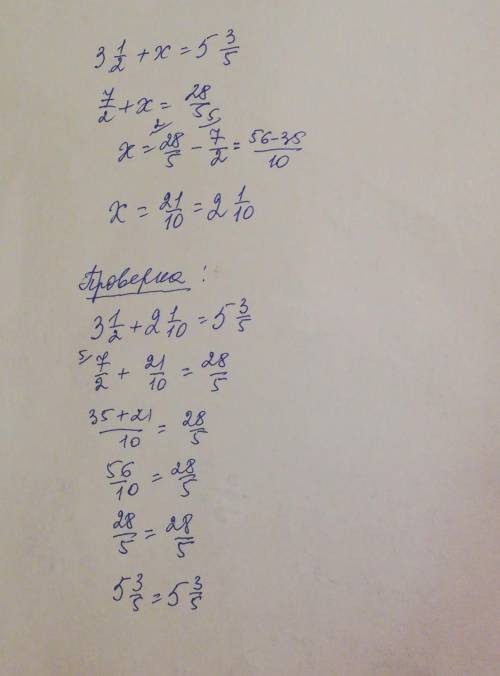 3 1/2 + x = 5 3/5
7/2 + x = 28/5
x = 2) 28/5 - 5) 7/2 = 56-35/10
x = 21/10 = 2 1/10
Проверка:
3 1/2 + 2 1/10 = 5 3/5
5) 7/2 + 21/10 = 28/5
35+21/10 = 28/5
56/10 = 28/5
28/5 = 28/5
5 3/5 = 5 3/5